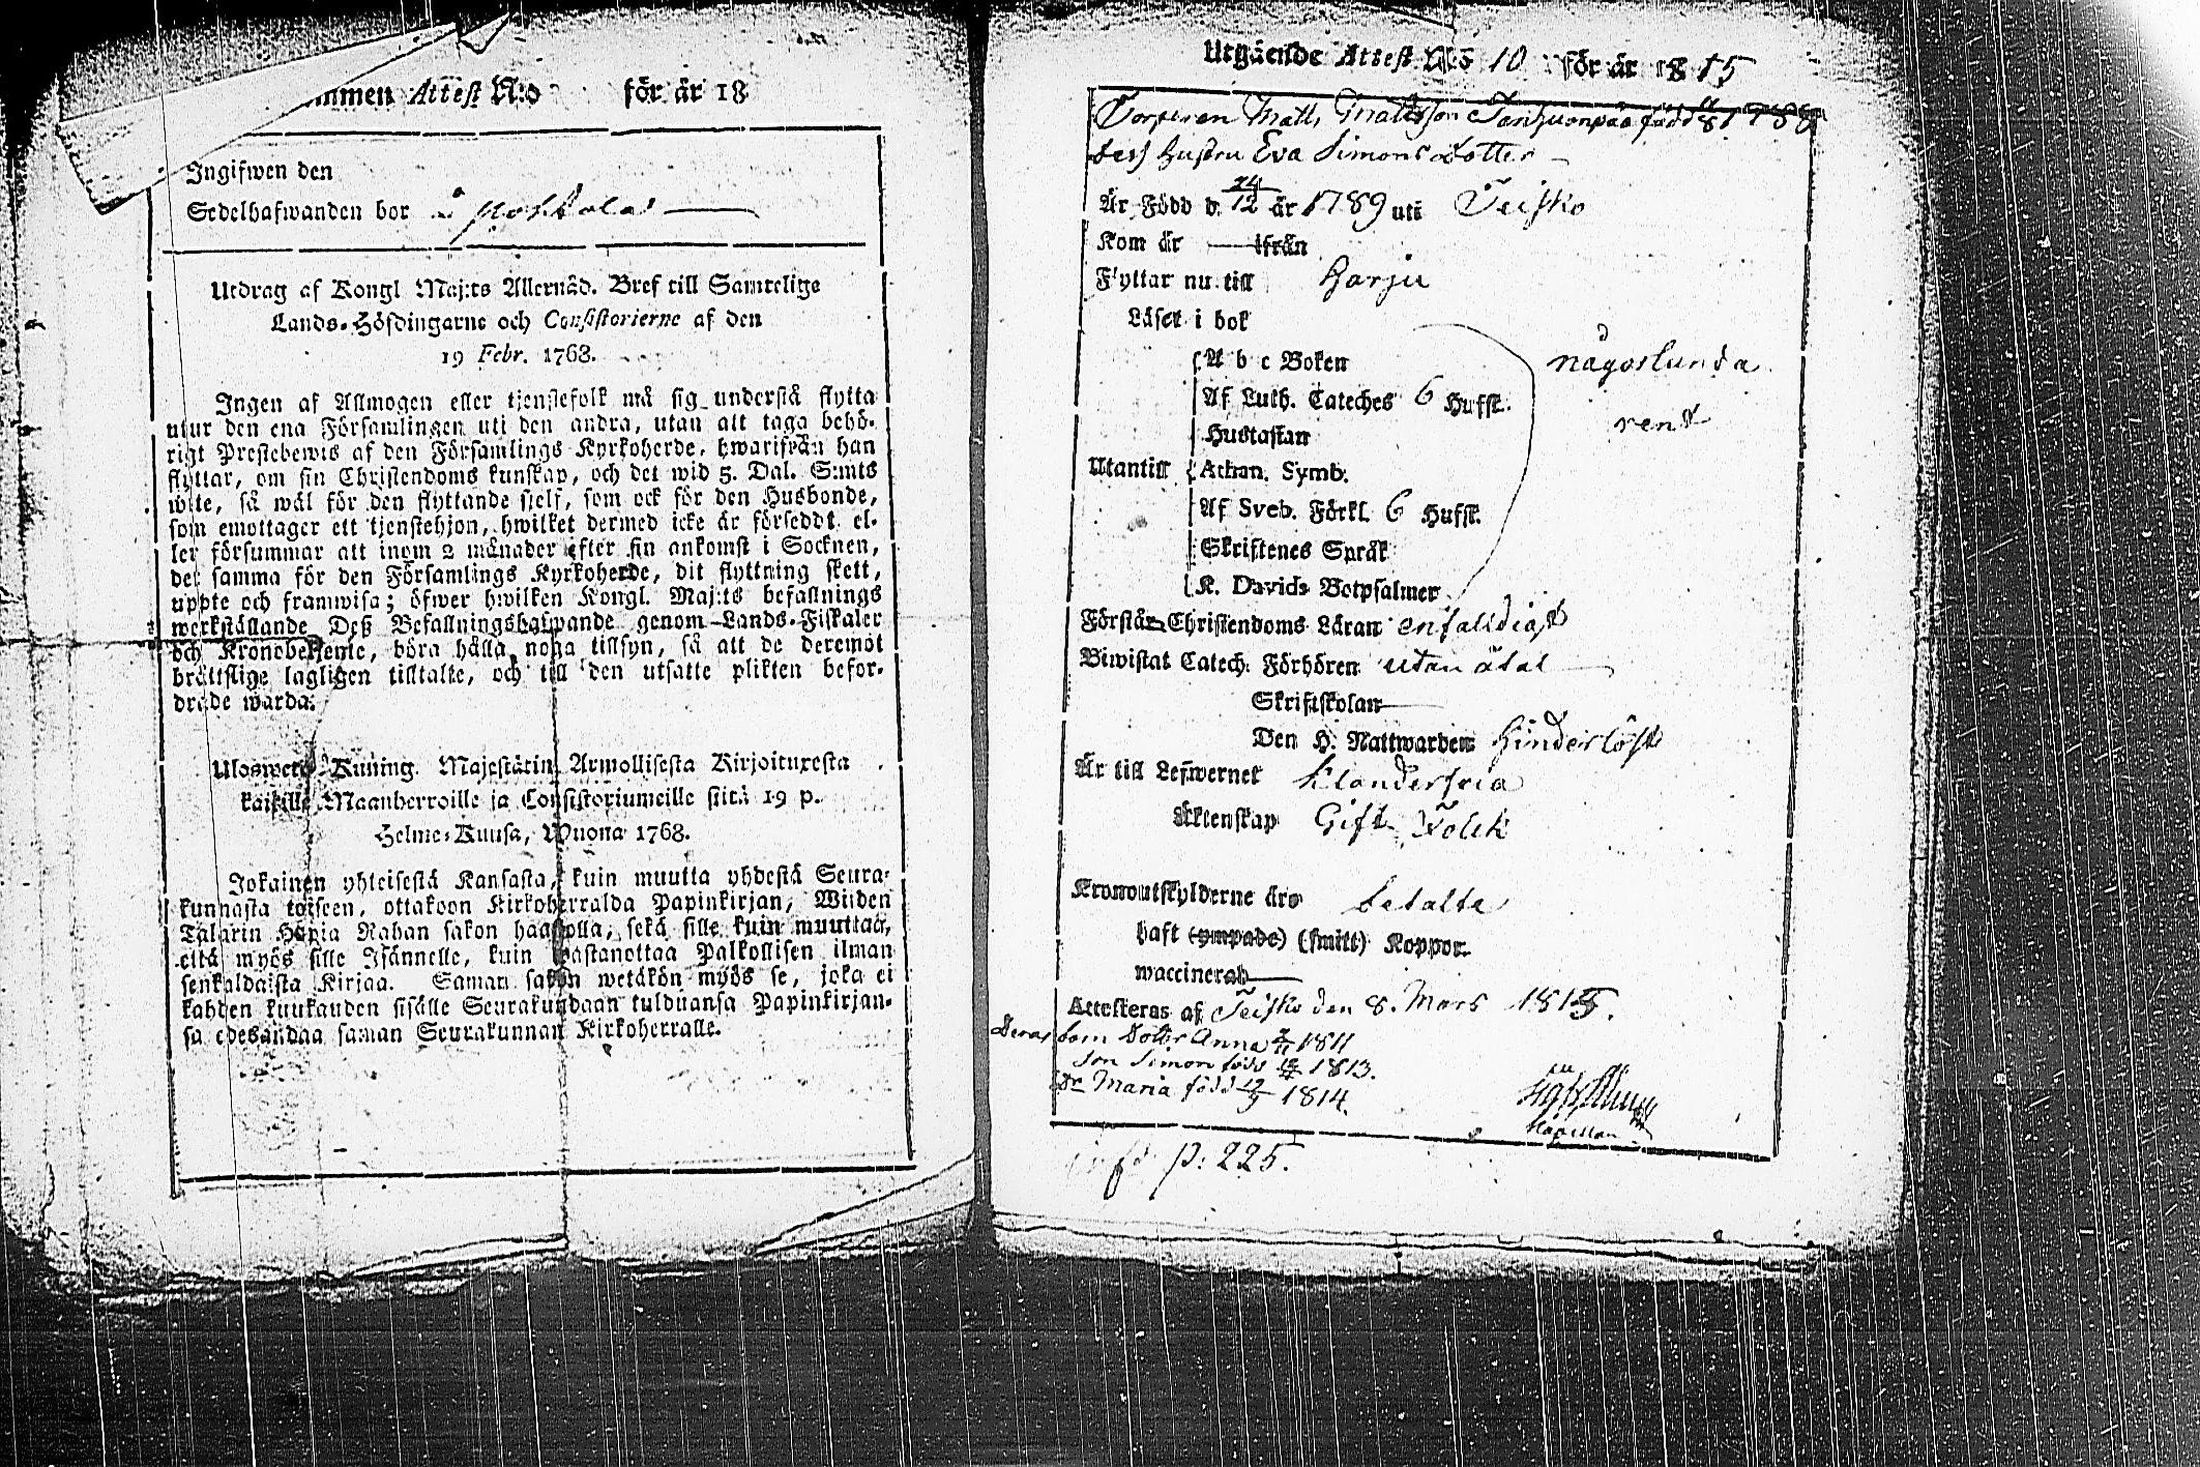 mmen Attest N:o för år 18
Ingifwen den
Sedelhafwanden bor
Utdrag af Kongl Maj:ts Allernåd. Bref till Samtelige
Lands-Höfdingarne och Consistorierne af den
19 Febr. 1768.
Ingen af Allmogen eller tjenstefolk må sig understå flytta
utur den ena Församlingen uti den andra, utan att taga behö-
rigt Prestebewis af den Församlings Kyrkoherde, hwarifrån han
flyttar, om sin Christendoms kunskap, och det wid 5. Dal. S:mts
wite, så wäl för den flyttande sjelf, som ock för den Husbonde,
som emottager ett tjenstehjon, hwilket dermed icke är förseddt el-
ler försummar att inom 2 månader efter sin ankomst i Socknen,
det samma för den Församlings Kyrkoherde, dit flyttning skett,
uppte och framwisa; öfwer hwilken Kongl. Maj:ts befallnings
werkställande Deß Befallningshafwande genom Lands-Fiskaler
och Kronobetjente, böra hålla noga tillsyn, så att de deremot
bråttslige lagligen tilltalte, och till den utsatte plikten befor-
drade warda.
Ulosweto Kuning. Majestätin Armollisesta Kirjoituxesta
kaikille Maanherroille ja Consistoriumeille siitä 19 p.
Helme-Kuusa, Wuona 1768.
Jokainen yhteisestä Kansasta, kuin muutta yhdestä Seura-
kunnasta toiseen, ottakoon Kirkoherralda Papinkirjan, Wiiden
Talarin Hopia Rahan sakon haastolla, sekä sille kuin muuttaa,
että myös sille Isännelle, kuin wastanottaa Palkollisen ilman
senkaldaista Kirjaa. Saman sakon wetäkön myös se, joka ei
kahden kuukauden sisälle Seurakundaan tulduansa Papinkirjan-
sa edesandaa saman Seurakunnan Kirkoherralle.
Utgående Attest N:o 10 för år 1815
Torparen Matts Mattsson född 1788
dess hustru Eva Simonsdotter
Är Född d. 24/12 år 1789 uti Teisko
Kom år ifrån
Flyttar nu till Harju
Läser i bok
A b c Boken någorlunda
Af Luth. Cateches 6 Hufst.
rent
Hustaflan
Utantill Athan. Symb.
Af Sveb. Förkl. 6 Hufst.
Skriftenes Språk
K. Davids Botpsalmer
Förstår Christendoms Läran enfaldigt
Biwistat Catech. Förhören utan åtal
Skriftskolan
Den H. Nattwarden hinderlöst
Är till Lefwernet klanderfria
Äktenskap Gift Folck
Kronoutskylderne äro betalte
haft (ympade) (smitt) Koppor.
waccinerad
Attesteras af Teisko den 8. Mars 1815.
Deras barn Dotter Anna 1811
Son Simon född 1813.
Dr Maria född 1814.
Kapellan
p: 225.